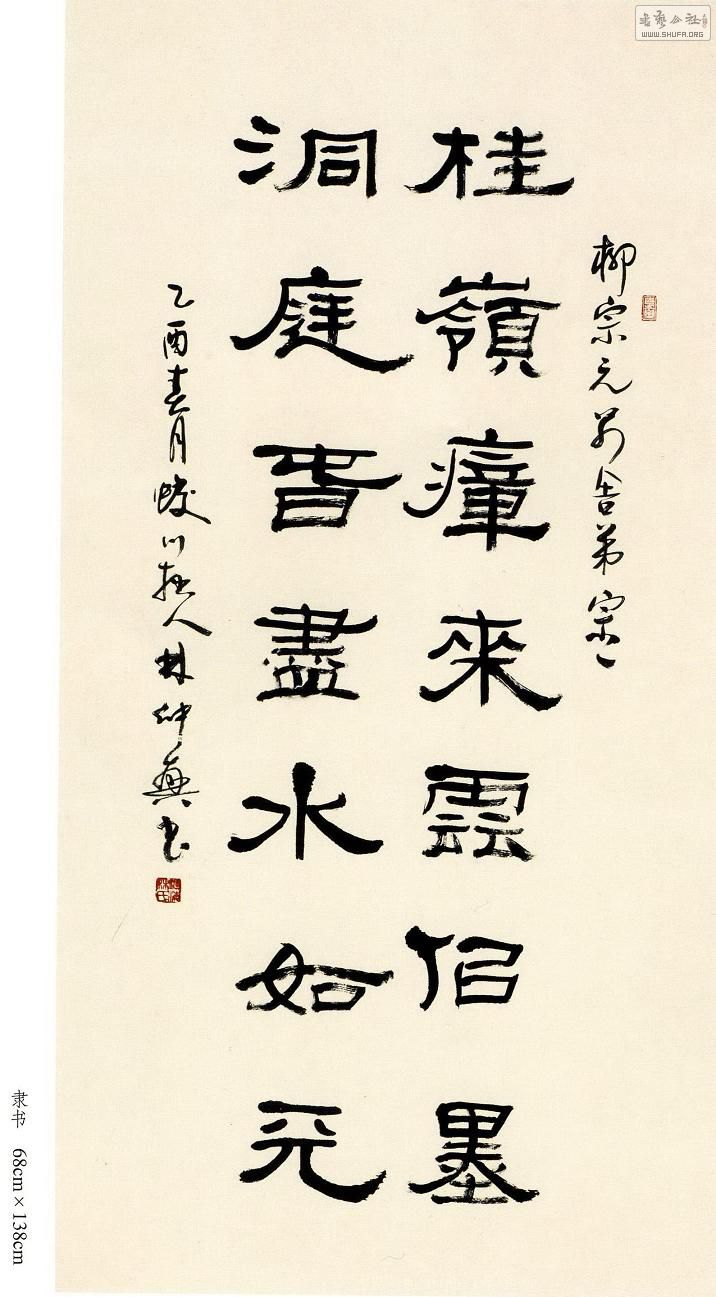 書藝公社
WWW.SHUFA.ORG
柳宗元别舍弟宗一
桂嶺瘴来雲似墨
洞庭春盡水如天
乙酉春月蛟川拙人林仲興书
隶书 68cm×138cm